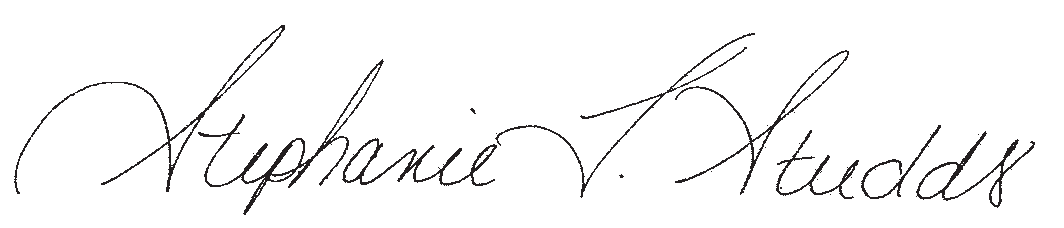 Stephanie L. Studds